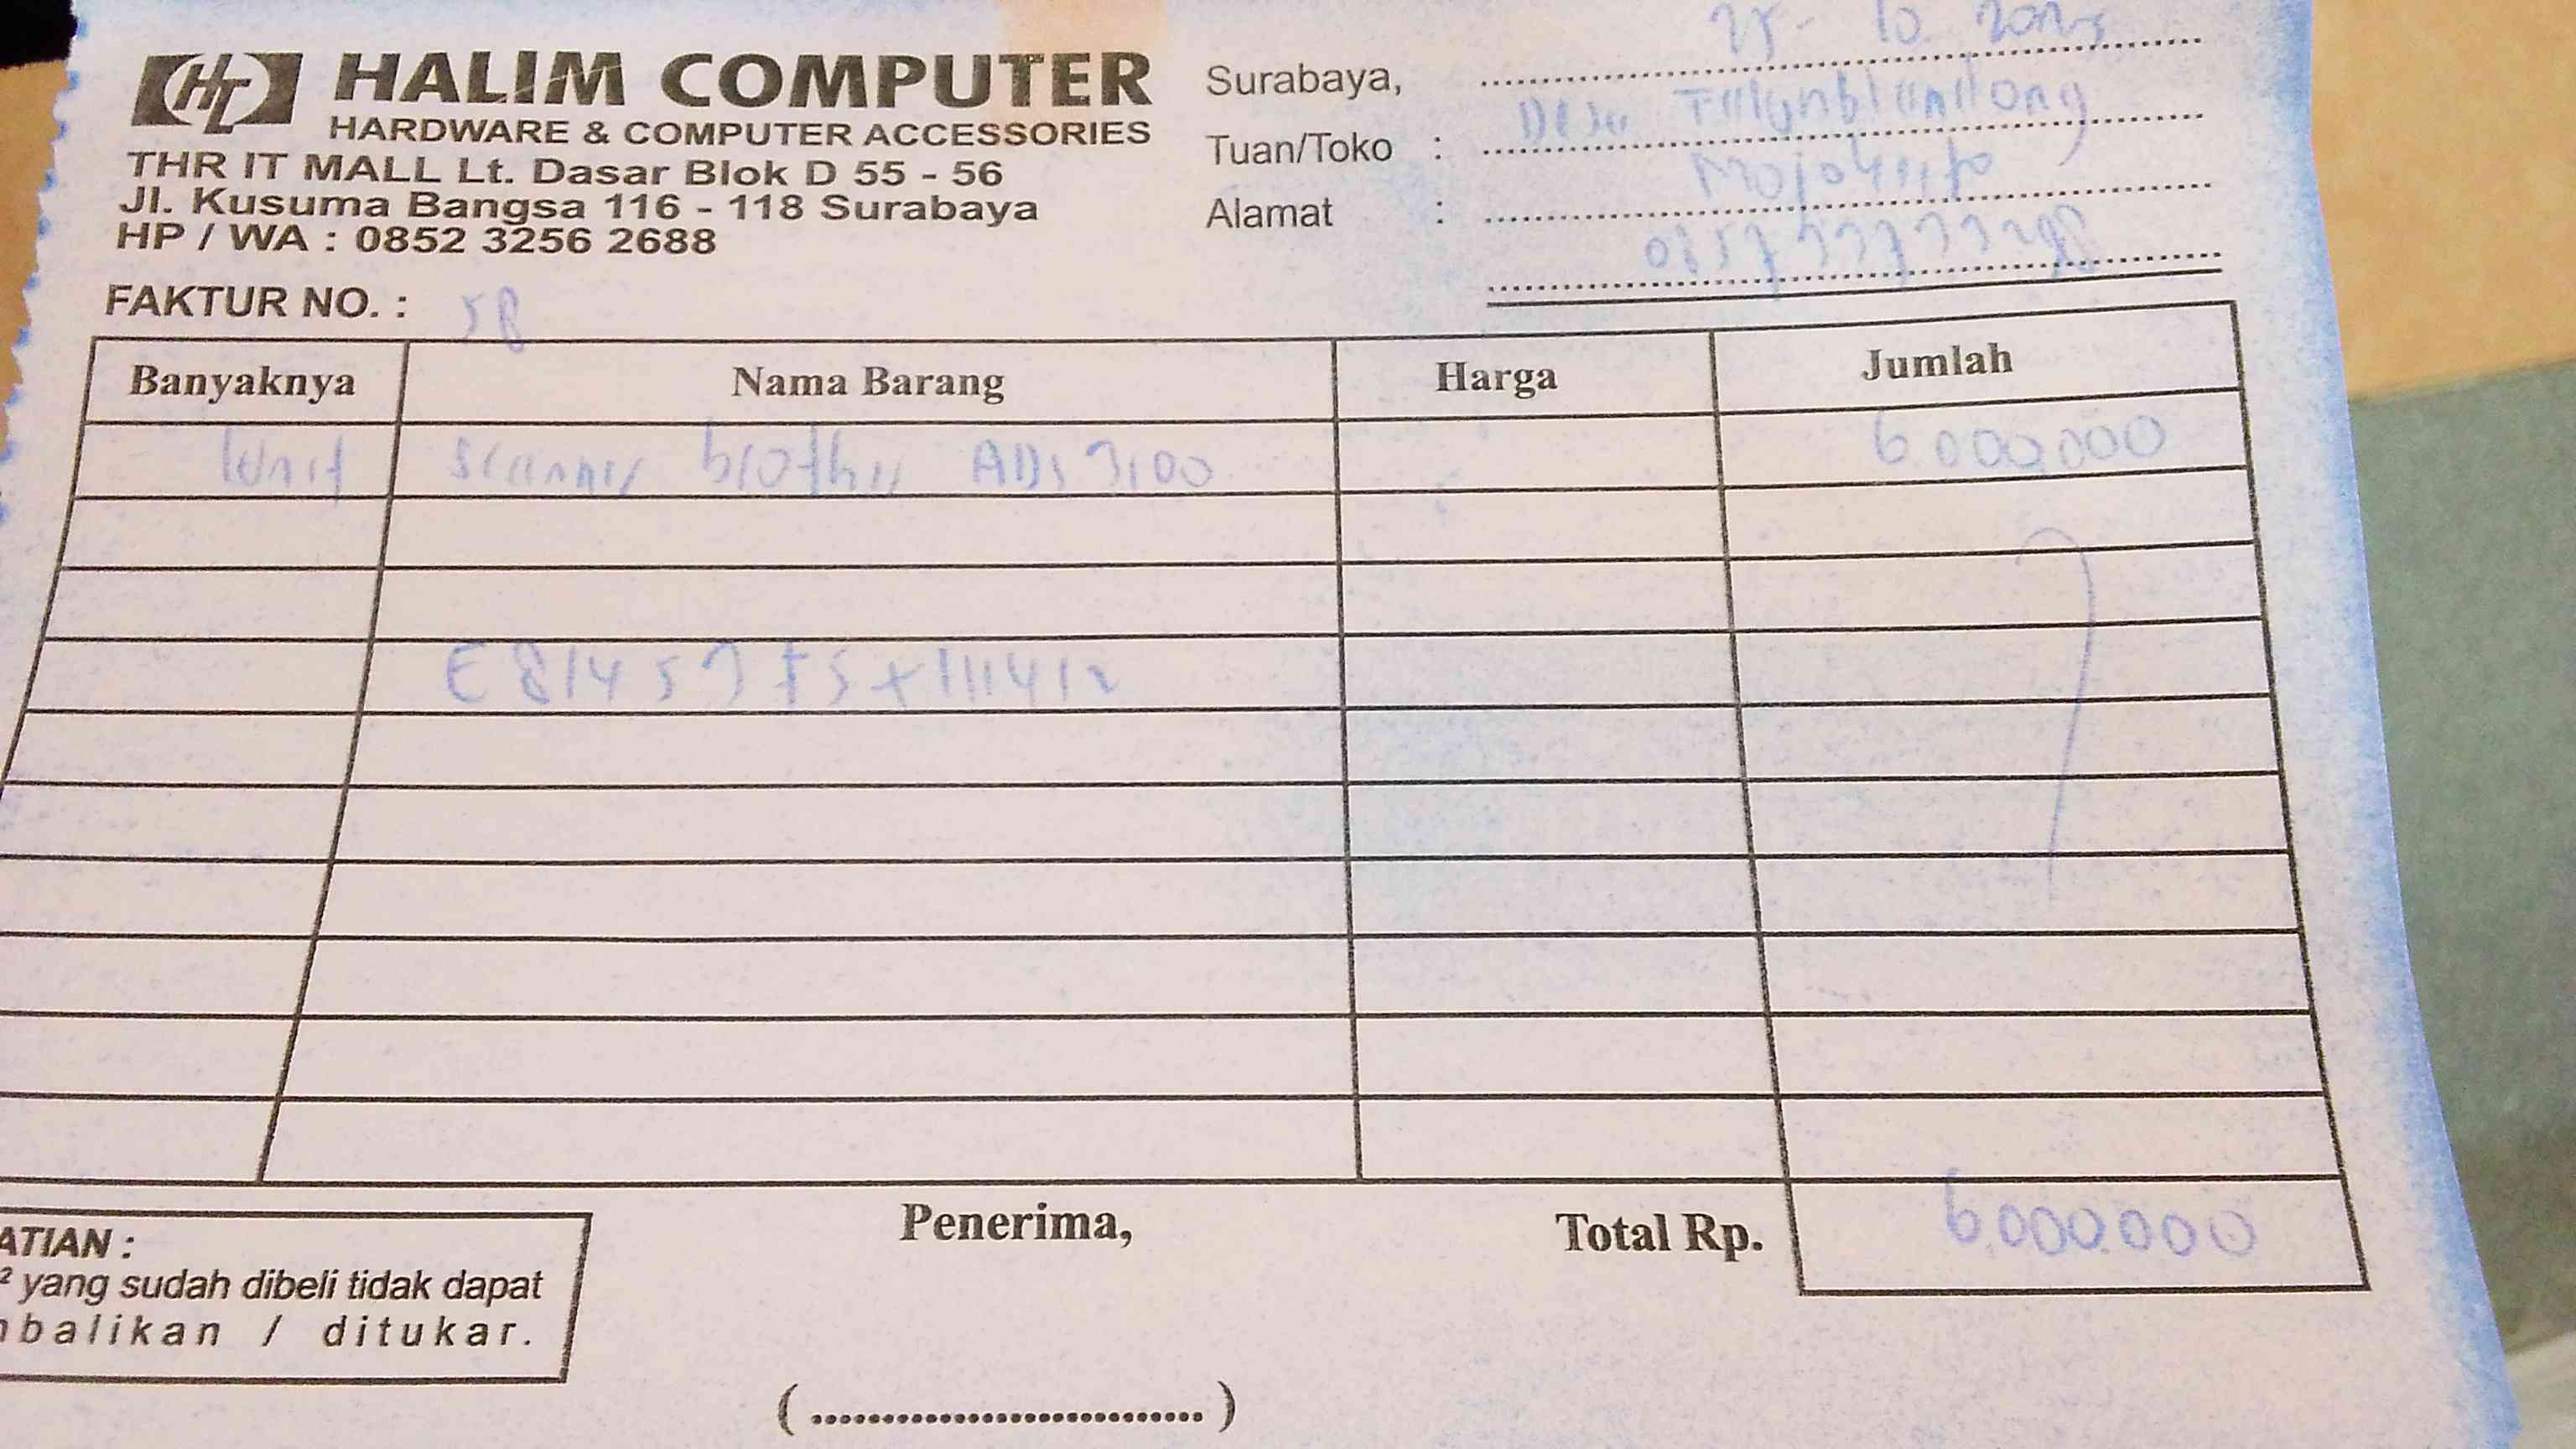 HALIM COMPUTER
HARDWARE & COMPUTER ACCESSORIES
THR IT MALL Lt. Dasar Blok D 55 - 56
Jl. Kusuma Bangsa 116 - 118 Surabaya
HP / WA : 0852 3256 2688
Surabaya, 25 - 10
Tuan/Toko : Desa
Alamat : Mojokerto
FAKTUR NO. : 58
Banyaknya Nama Barang Harga Jumlah
1 unit scanner brother ADS 3100 6.000.000
ATIAN :
² yang sudah dibeli tidak dapat
balikan / ditukar.
Penerima,
Total Rp. 6.000.000
(..............................)